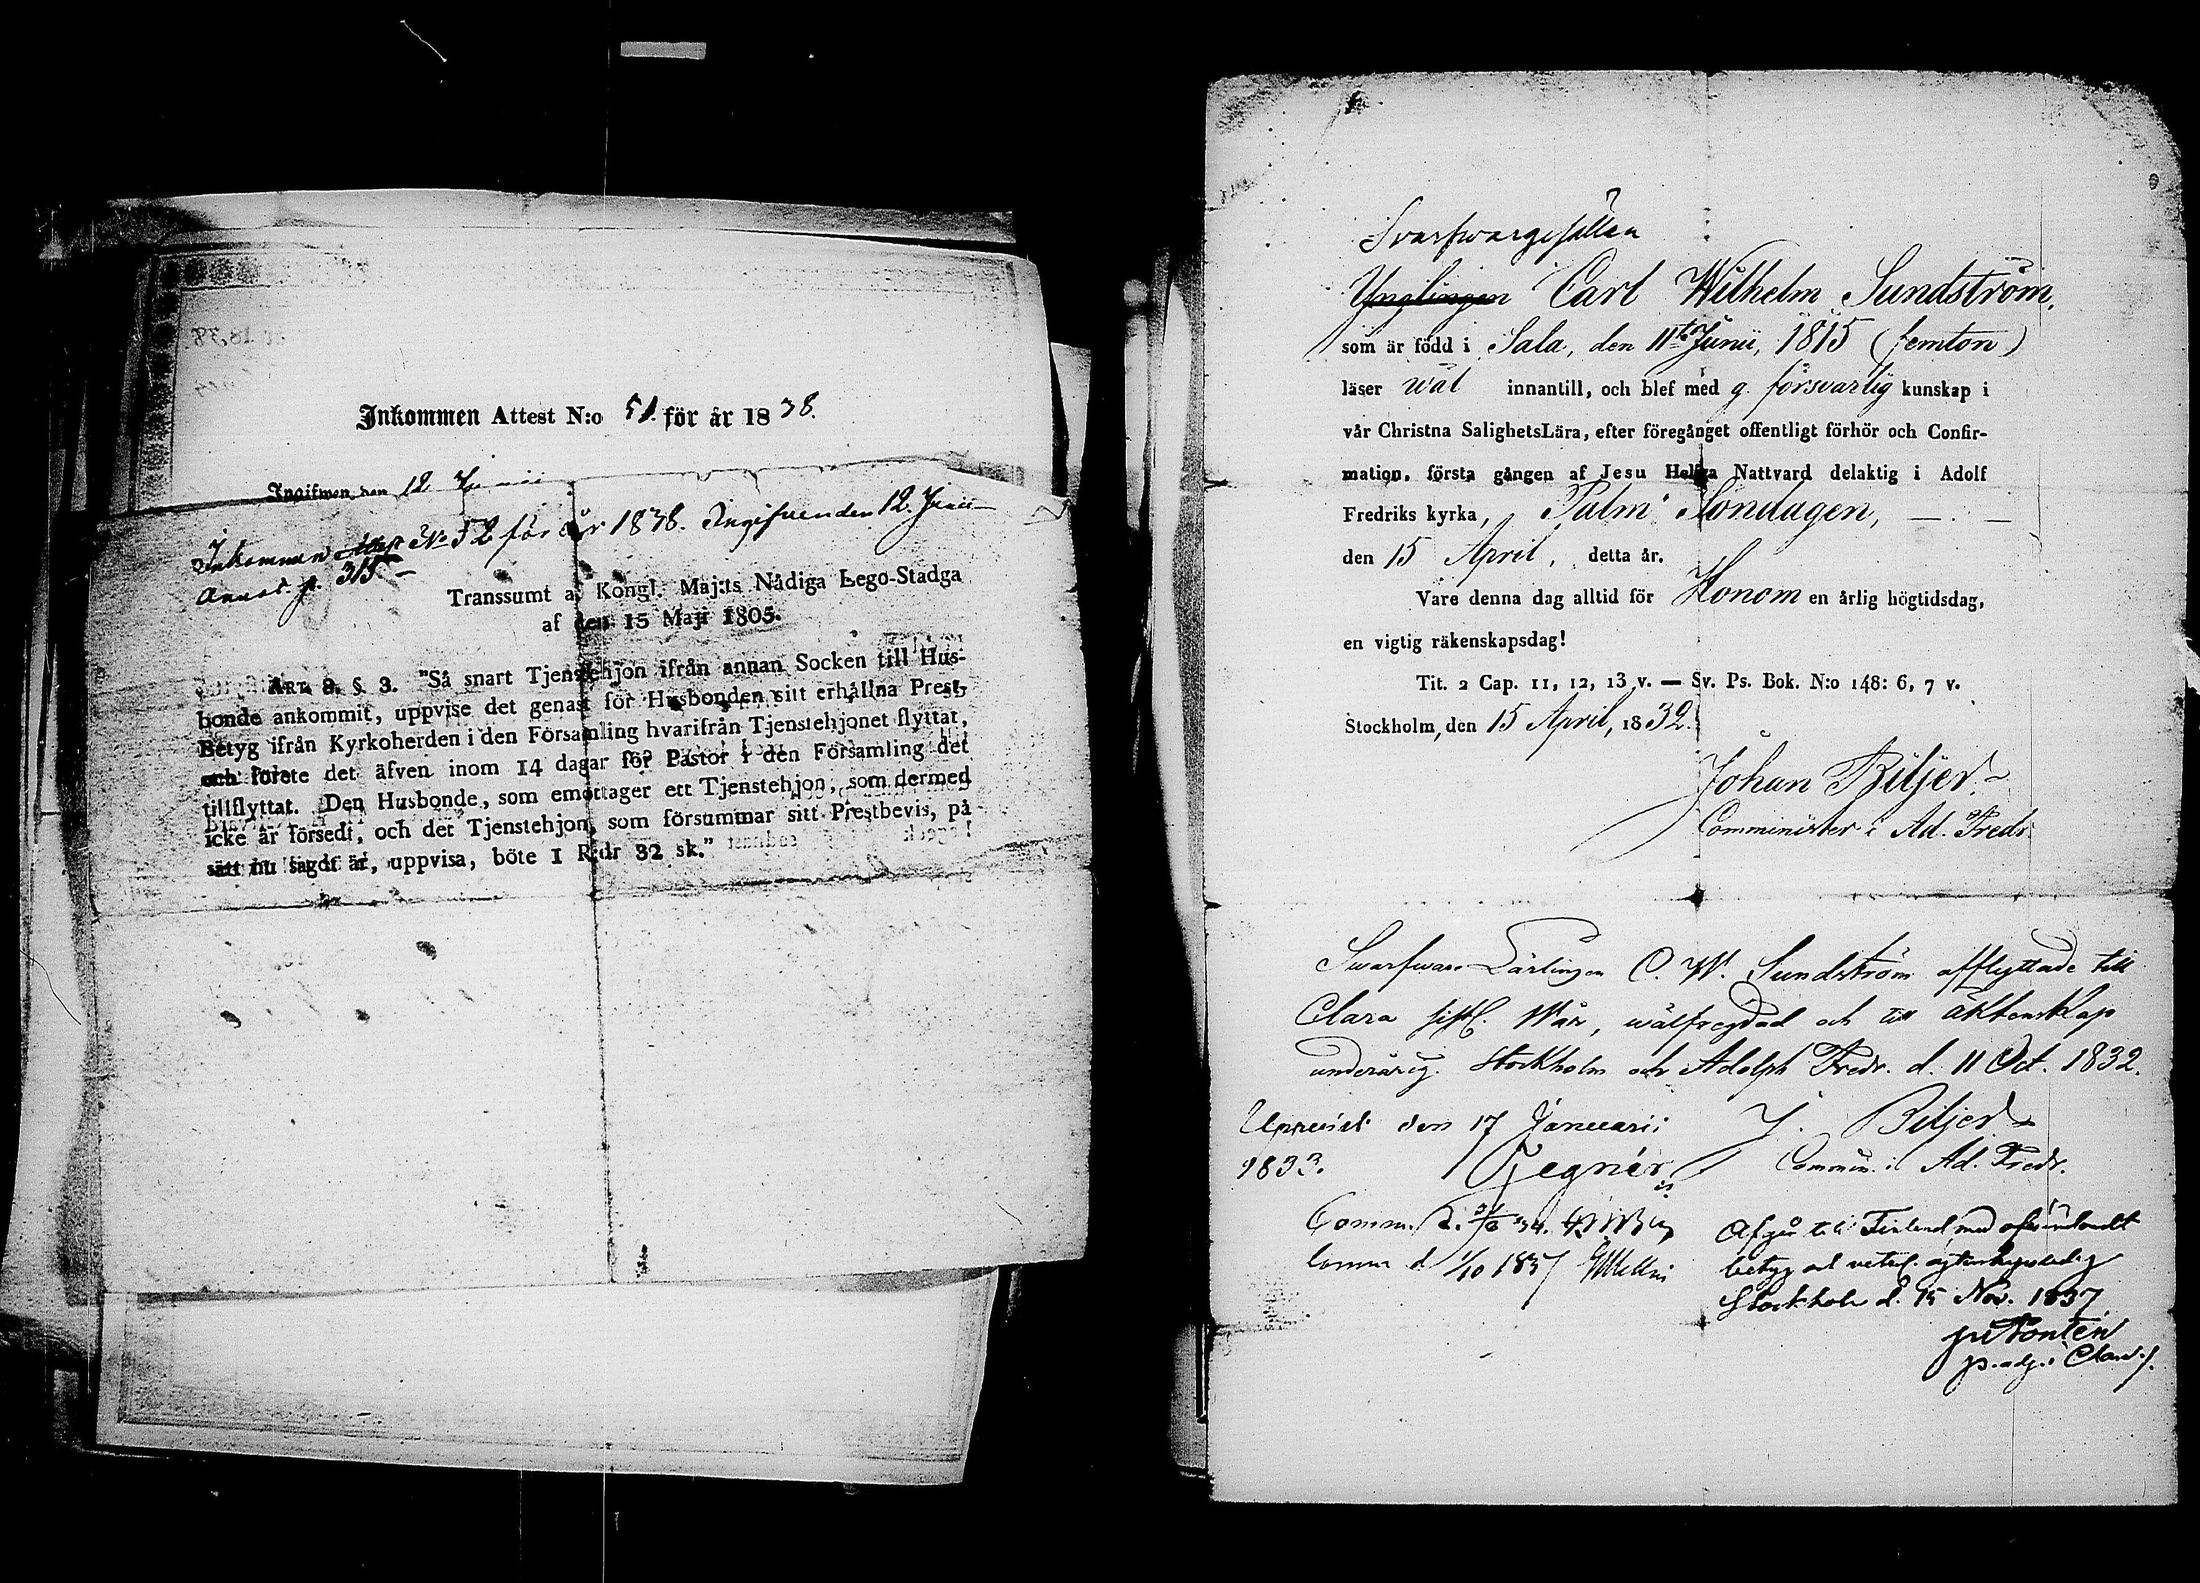 Inkommen Attest N:o 51. för år 1838.
Ingifwen den 12 Junii
Inkommen Attest No 52 för år 1838. Ingifven den 12. Junii
Annot. p. 315
Transsumt af Kongl. Maj:ts Nådiga Lego-Stadga
af den 15 Maji 1805.
ART. 8. §. 3. "Så snart Tjenstehjon ifrån annan Socken till Hus-
bonde ankommit, uppvise det genast för Husbonden sitt erhållna Prest-
Betyg ifrån Kyrkoherden i den Församling hvarifrån Tjenstehjonet flyttat,
och förete det äfven inom 14 dagar för Pastor i den Församling det
tillflyttat. Den Husbonde, som emottager ett Tjenstehjon, som dermed
icke är försedt, och det Tjenstehjon, som försummar sitt Prestbevis, på
sätt nu sagdt är, uppvisa, böte 1 R:dr 32 sk."
Svarfvaregesällen
Ynglingen Carl Wilhelm Sundström,
som är född i Sala, den 11te Junii, 1815 (femton)
läser wäl innantill, och blef med g. försvarlig kunskap i
vår Christna SalighetsLära, efter föregånget offentligt förhör och Confir-
mation, första gången af Jesu Helga Nattvard delaktig i Adolf
Fredriks kyrka, Palm Söndagen,
den 15 April, detta år.
Vare denna dag alltid för Honom en årlig högtidsdag,
en vigtig räkenskapsdag!
Tit. 2 Cap. 11, 12, 13 v. — Sv. Ps. Bok. N:o 148: 6, 7 v.
Stockholm, den 15 April, 1832.
Johan Biljer
Comminister i Ad. Fredr.
Swarfware Lärlingen C. W. Sundström afflyttade till
Clara sistl. Wår, wälfregdad och till äktenskap
underårig. Stockholm och Adolph Fredr. d. 11 Oct. 1832.
Uppvist den 17 Januarii J. Biljer
1833. Commin. i Ad. Fredr.
Comm. d. 34.
Comm d 1/10 1837
Afgår till Finland med
betyg
Stockholm d. 15 Nov. 1837
p. adj. i Clara